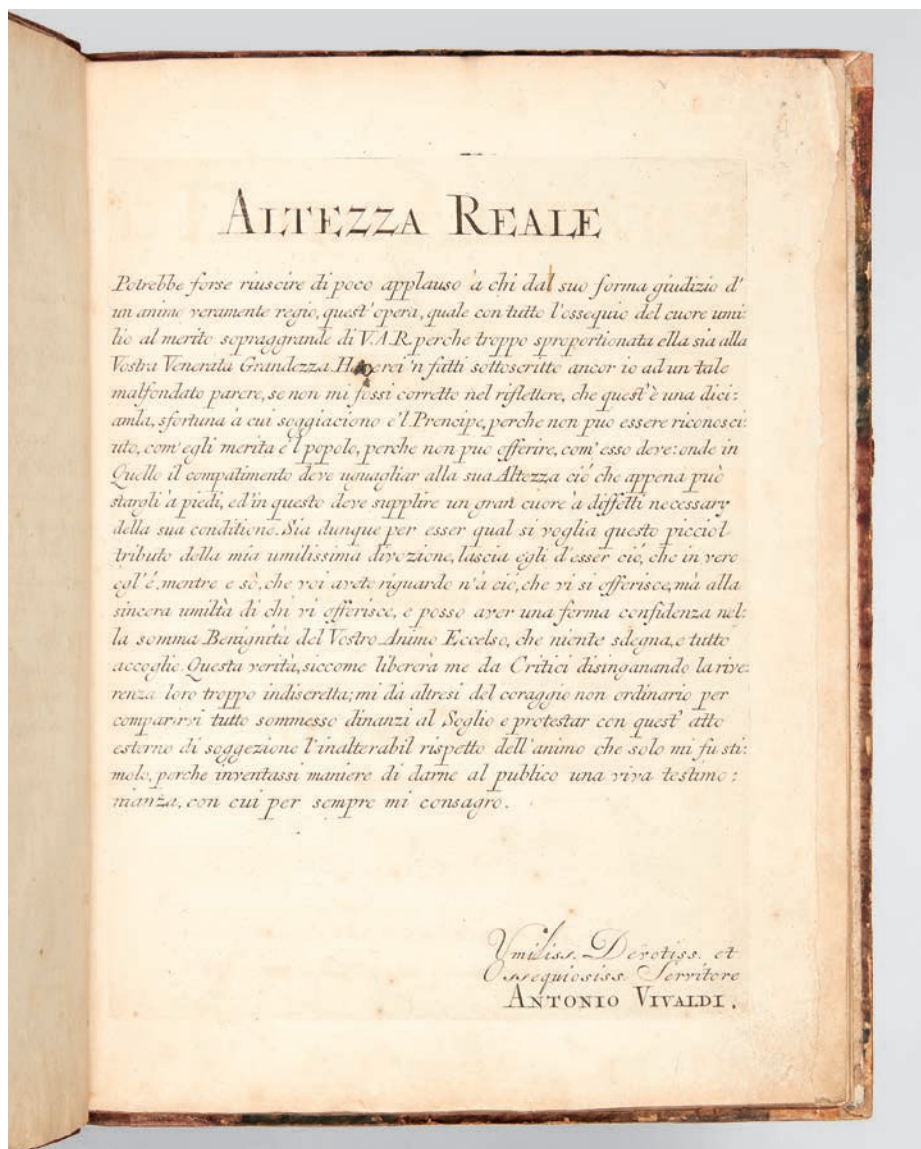 ALTEZZA REALE
Potrebbe forse riuscire di poco applauso à chi dal suo forma giudizio d'
un animo veramente regio, quest' opera, quale con tutto l'ossequio del cuore umi:
lio al merito sopraggrande di V.A.R. perche troppo sproportionata ella sia alla
Vostra Venerata Grandezza. Haverei 'n fatti sottoscritto ancor io ad un tale
malfondato parere, se non mi fossi corretto nel riflettere, che quest'è una dici:
amla, sfortuna à cui soggiaciono e'l Prencipe, perche non puo essere riconosci:
uto, com' egli merita e 'l popolo, perche non puo offerire, com' esso deve: onde in
Quello il compatimento deve uguagliar alla sua Altezza ciò che appena può
stargli à piedi, ed in questo deve supplire un gran cuore à diffetti necessary
della sua conditione. Sia dunque per esser qual si voglia questo picciol
tributo della mia umilissima divozione, lascia egli d'esser ciò, che in vero
egl'é, mentre e sò, che voi avete riguardo n'à ciò, che vi si offerisce, mà alla
sincera umiltà di chi vi offerisce, e posso aver una ferma confidenza nel:
la somma Benignità del Vostro Animo Eccelso, che niente sdegna, e tutto
accoglie. Questa verità, siccome libererà me da Critici disinganando la rive:
renza loro troppo indiscretta; mi dà altresi del coraggio non ordinario per
comparirvi tutto sommesso dinanzi al Soglio e protestar con quest' atto
esterno di soggezione l'inalterabil rispetto dell'animo che solo mi fu sti:
molo, perche inventassi maniere di darne al publico una viva testimo:
nianza, con cui per sempre mi consagro.
Umiliss. Devotiss. et
Ossequiosiss. Servitore
ANTONIO VIVALDI.